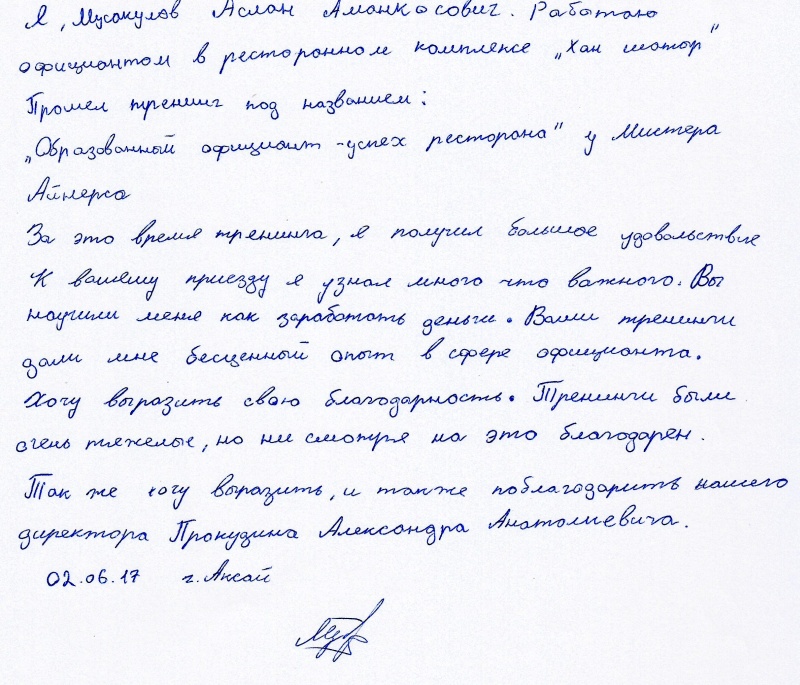 Я, Мусакулов Аслан Аманкосович. Работаю
официантом в ресторанном комплексе „Хан шатор"
Прошел тренинг под названием:
„Образованный официант - успех ресторана" у Мистера
Айнерса
За это время тренинга, я получил большое удовольствие
К вашему приезду я узнал много что важного. Вы
научили меня как заработать деньги. Ваши тренинги
дали мне бесценный опыт в сфере официанта.
Хочу выразить свою благодарность. Тренинги были
очень тяжелые, но ни смотря на это благодарен.
Так же хочу выразить, и также поблагодарить нашего
директора Прокудина Александра Анатолиевича.
02.06.17 г. Аксай